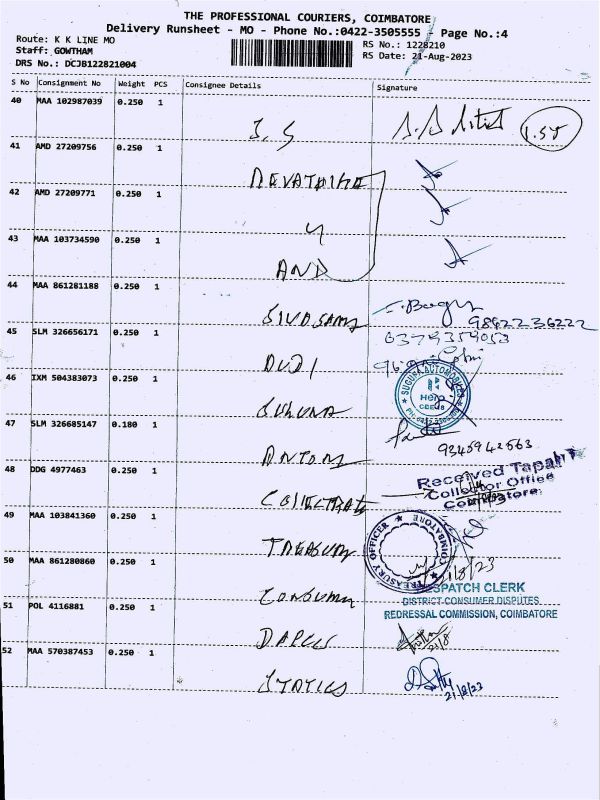 THE PROFESSIONAL COURIERS, COIMBATORE
Delivery Runsheet - MO - Phone No.:0422-3505555 - Page No.:4
Route: K K LINE MO
RS No.: 1228210
Staff: GOWTHAM
RS Date: 21-Aug-2023
DRS No.: DCJB122821004
S No Consignment No Weight PCS Consignee Details Signature
40 MAA 102987039 0.250 1
J. S
1.50
41 AMD 27209756 0.250 1
42 AMD 27209771 0.250 1
43 MAA 103734590 0.250 1
AND
44 MAA 861281188 0.250 1
98422 36222
45 SLM 326656171 0.250 1
6379354053
46 IXM 504383073 0.250 1
SUGUNA AUTOMOBILES
Hero
CBE-18
47 SLM 326685147 0.180 1
ANTONY
9345942563
48 DDG 4977463 0.250 1
COLLECTRATE
Received Tapal
Collector Office
Coimbatore
49 MAA 103841360 0.250 1
TREASURY
TREASURY OFFICER COIMBATORE
21/8/23
50 MAA 861280860 0.250 1
CONSUMER
DESPATCH CLERK
DISTRICT CONSUMER DISPUTES
REDRESSAL COMMISSION, COIMBATORE
51 POL 4116881 0.250 1
21/8
52 MAA 570387453 0.250 1
STATICS
21/8/23